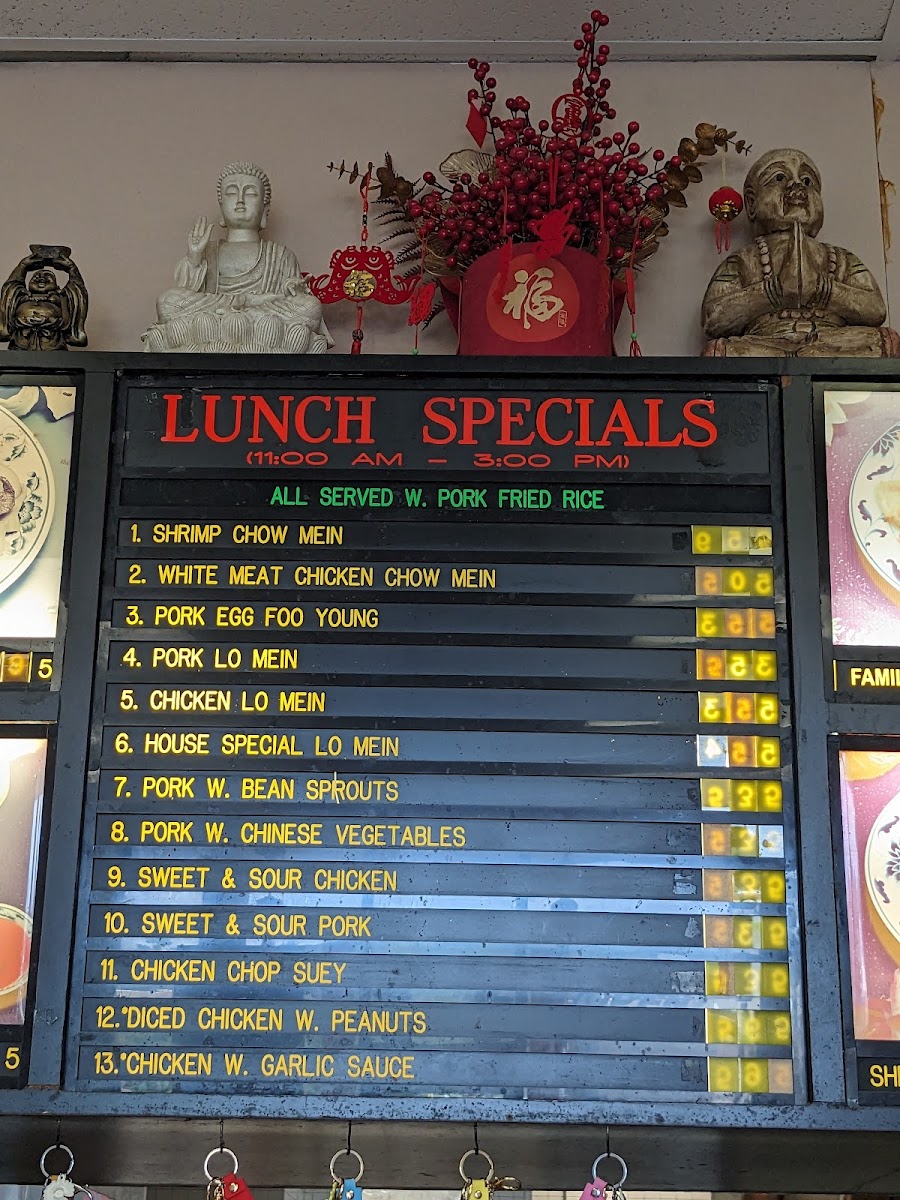 福
LUNCH SPECIALS
(11:00 AM — 3:00 PM)
ALL SERVED W. PORK FRIED RICE
1. SHRIMP CHOW MEIN
2. WHITE MEAT CHICKEN CHOW MEIN
3. PORK EGG FOO YOUNG
4. PORK LO MEIN
5. CHICKEN LO MEIN
6. HOUSE SPECIAL LO MEIN
7. PORK W. BEAN SPROUTS
8. PORK W. CHINESE VEGETABLES
9. SWEET & SOUR CHICKEN
10. SWEET & SOUR PORK
11. CHICKEN CHOP SUEY
12.*DICED CHICKEN W. PEANUTS
13.*CHICKEN W. GARLIC SAUCE
5
5